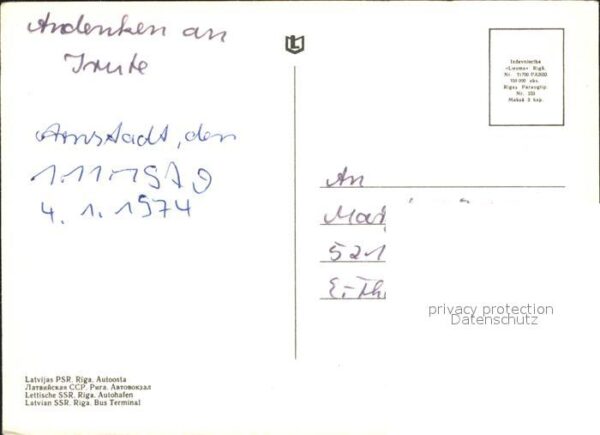 Andenken an
Irute
Arnstadt, den
1.11.1970
4. 1. 1974
Izdevniecība
«Liesma» Rīgā
100 000 eks.
Rīgas Paraugtip.
Maksā 3 kap.
An
Mar
521
E.-Th
privacy protection
Datenschutz
Latvijas PSR. Rīga. Autoosta
Латвийская ССР. Рига. Автовокзал
Lettische SSR. Riga. Autohafen
Latvian SSR. Riga. Bus Terminal